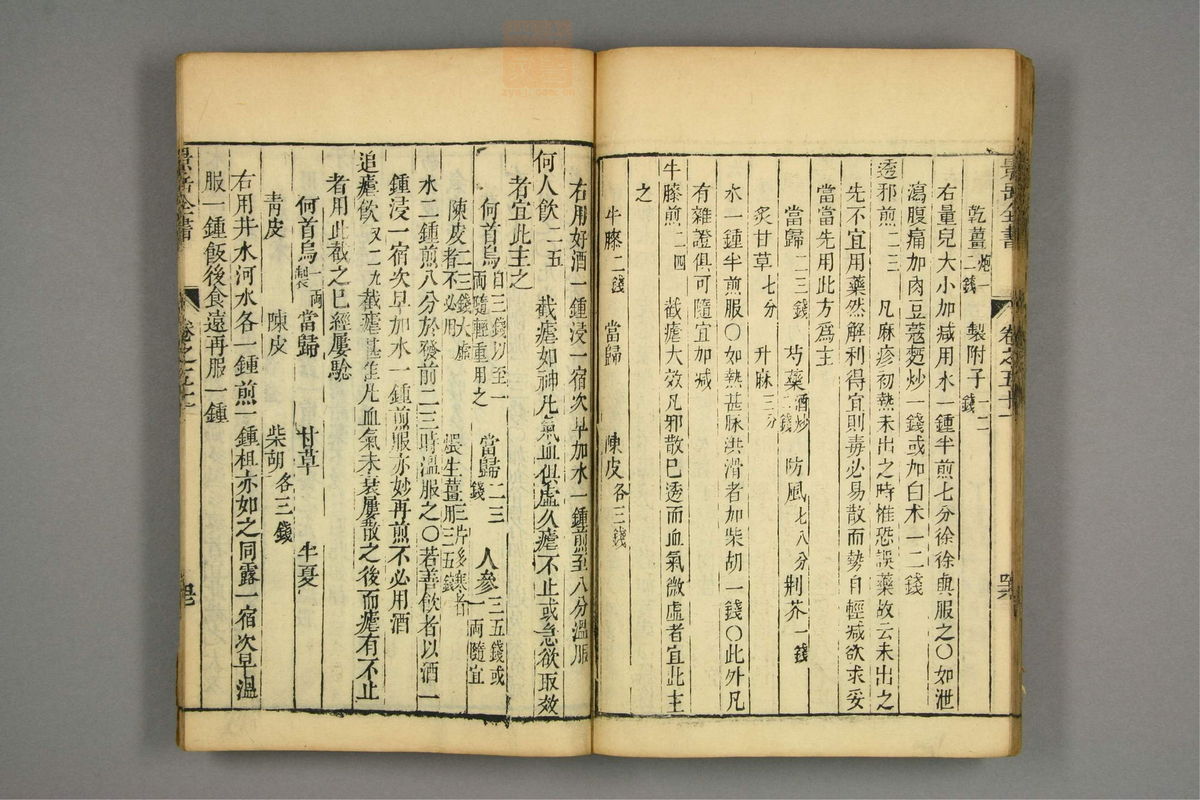 乾薑炮一二錢 製附子一二錢
右量兒大小加減用水一鍾半煎七分徐徐與服之〇如泄
瀉腹痛加肉豆蔻麪炒一錢或加白朮一二錢
透邪煎二三 凡麻疹初熱未出之時惟恐誤藥故云未出之
先不宜用藥然解利得宜則毒必易散而勢自輕減欲求妥
當當先用此方爲主
當歸二三錢 芍藥酒炒二錢 防風七八分 荆芥一錢
炙甘草七分 升麻三分
水一鍾半煎服〇如熱甚脉洪滑者加柴胡一錢〇此外凡
有雜證俱可隨宜加減
牛膝煎二四 截瘧大效凡邪散已透而血氣微虛者宜此主
之
牛膝二錢 當歸 陳皮各三錢
右用好酒一鍾浸一宿次早加水一鍾煎至八分溫服
何人飲二五 截瘧如神凡氣血俱虛久瘧不止或急欲取效
者宜此主之
何首烏自三錢以至一兩隨輕重用之 當歸二三錢 人參三五錢或一兩隨宜
陳皮二三錢大虛者不必用 煨生薑三片多寒者用三五錢
水二鍾煎八分於發前二三時溫服之〇若善飲者以酒一
鍾浸一宿次早加水一鍾煎服亦妙再煎不必用酒
追瘧飲 截瘧甚佳凡血氣未衰屢散之後而瘧有不止
者用此截之已經屢驗
何首烏一兩製 當歸 甘草 半夏
青皮 陳皮 柴胡各三錢
右用井水河水各一鍾煎一鍾柤亦如之同露一宿次早溫
服一鍾飯後食遠再服一鍾
景岳全書 卷之五十一
景岳全書